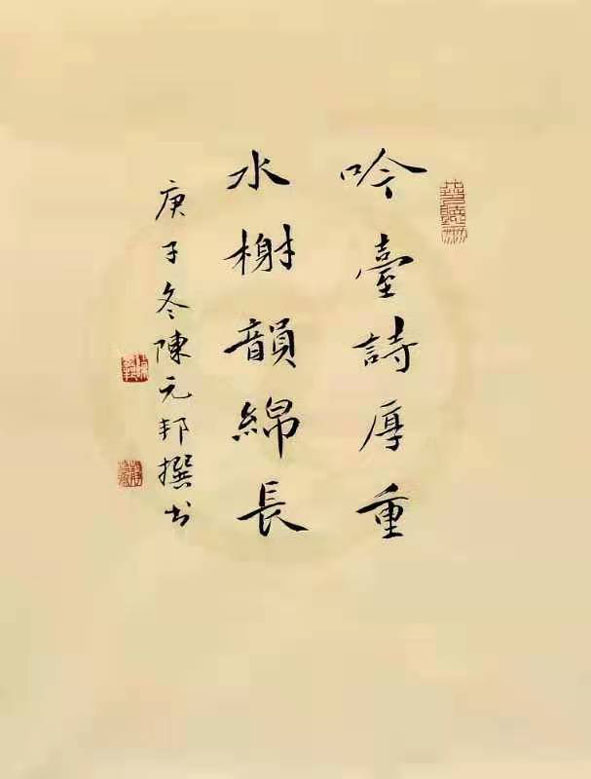 吟臺詩厚重
水榭韻綿長
庚子冬陳元邦撰书